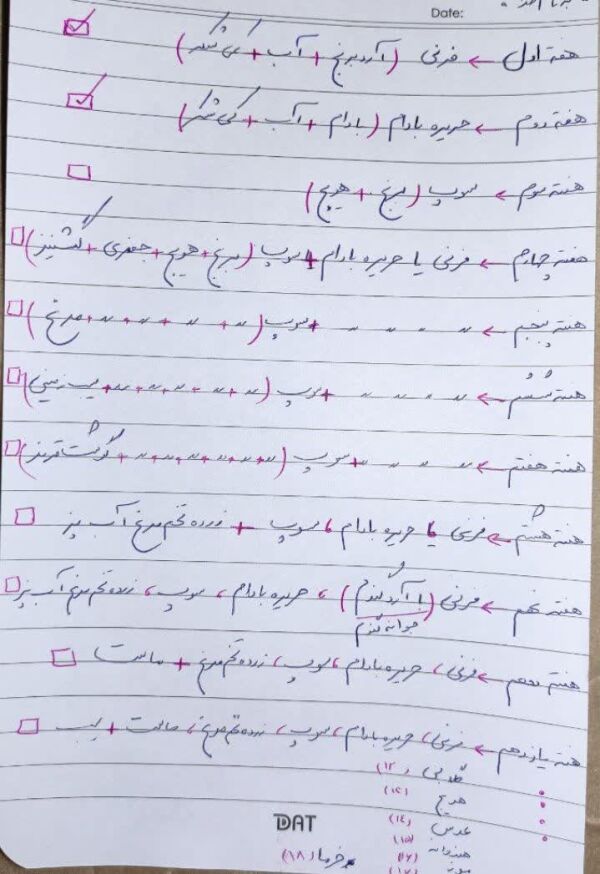 Date:
هفته اول ← فرنی (آرد برنج + آب + کمی شکر)
هفته دوم ← حریره بادام (بادام + آب + کمی شکر)
هفته سوم ← سوپ (برنج + هویج)
هفته چهارم ← فرنی یا حریره بادام + سوپ (برنج + هویج + جعفری + گشنیز)
هفته پنجم ← 〃 〃 〃 〃 + سوپ (〃 + 〃 + 〃 + 〃 + مرغ)
هفته ششم ← 〃 〃 〃 〃 + سوپ (〃 + 〃 + 〃 + 〃 + 〃 + سیب زمینی)
هفته هفتم ← 〃 〃 〃 〃 + سوپ (〃 + 〃 + 〃 + 〃 + 〃 + 〃 + گوشت قرمز)
هفته هشتم ← فرنی یا حریره بادام، سوپ + زرده تخم مرغ آب پز
هفته نهم ← فرنی (با آرد گندم)، حریره بادام، سوپ، زرده تخم مرغ آب پز
جوانه گندم
هفته دهم ← فرنی، حریره بادام، سوپ، زرده تخم مرغ + ماست
هفته یازدهم ← فرنی، حریره بادام، سوپ، زرده تخم مرغ، ماست + سیب
گلابی (۱۲)
هویج
عدس (۱۴)
هندوانه (۱۵)
موز (۱۷)
خرما (۱۸)
DAT